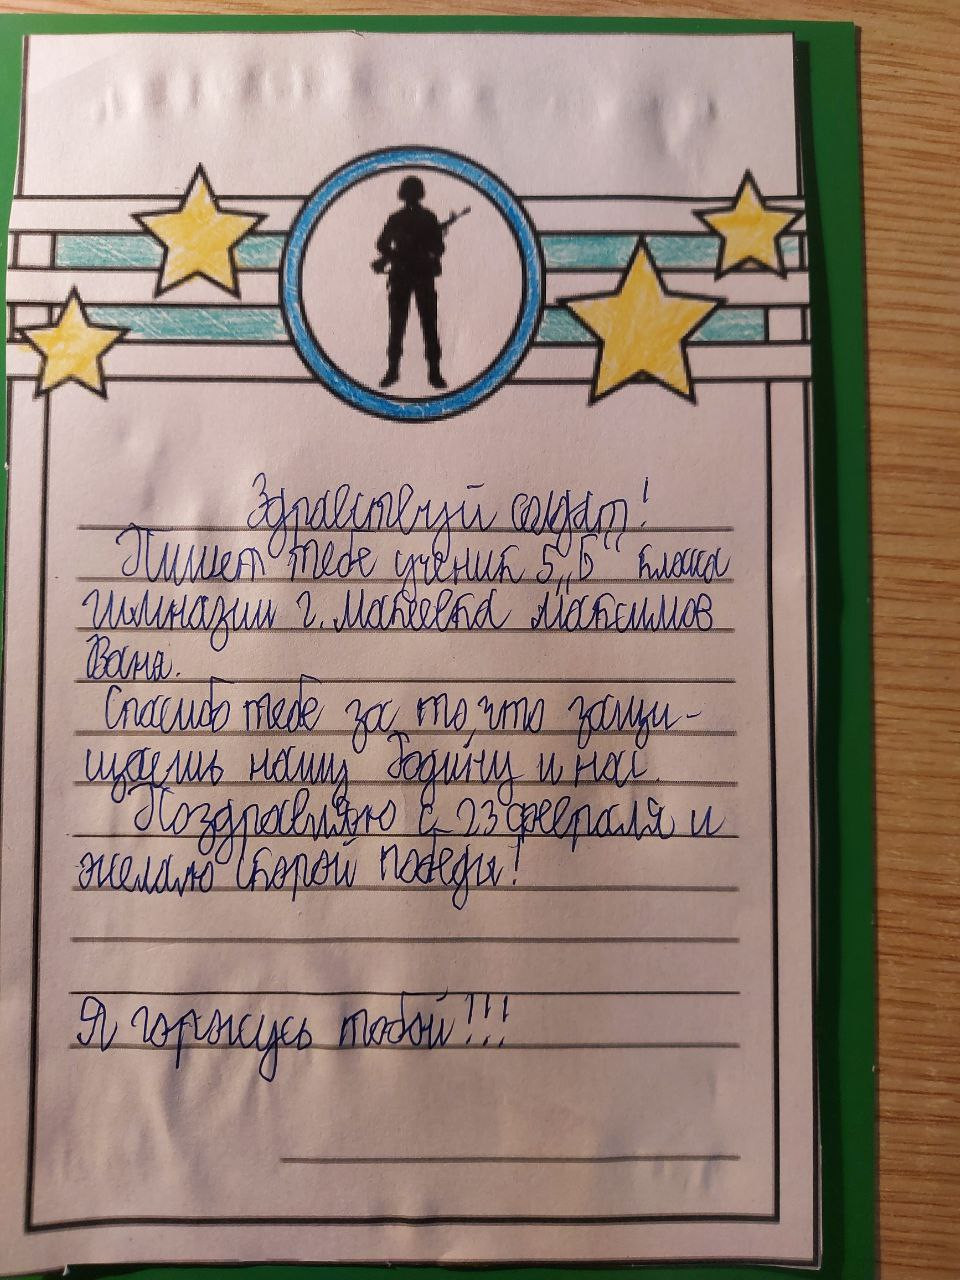 Здравствуй солдат!
Пишет тебе ученик 5 „Б“ класса
гимназии г. Макеевка Максимов
Ваня.
Спасибо тебе за то, что защи-
щаешь нашу Родину и нас.
Поздравляю с 23 февраля и
желаю скорой победы!
Я горжусь тобой!!!